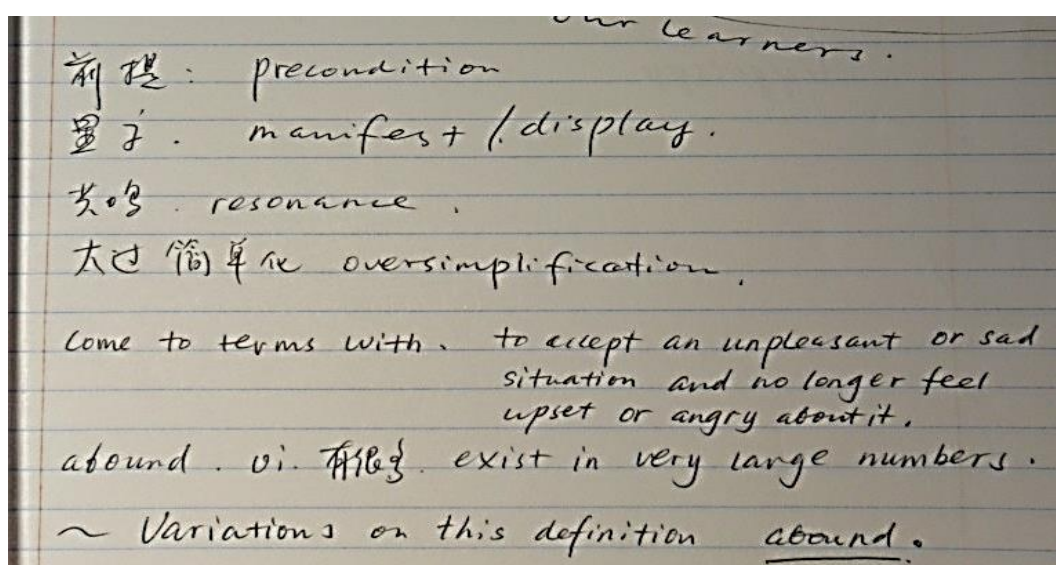 our learners.
前提： precondition
量子． manifest / display.
共鸣． resonance．
太过简单化 oversimplification.
Come to terms with. to accept an unpleasant or sad
situation and no longer feel
upset or angry about it.
abound. vi. 有很多. exist in very large numbers.
~ Variations on this definition abound.